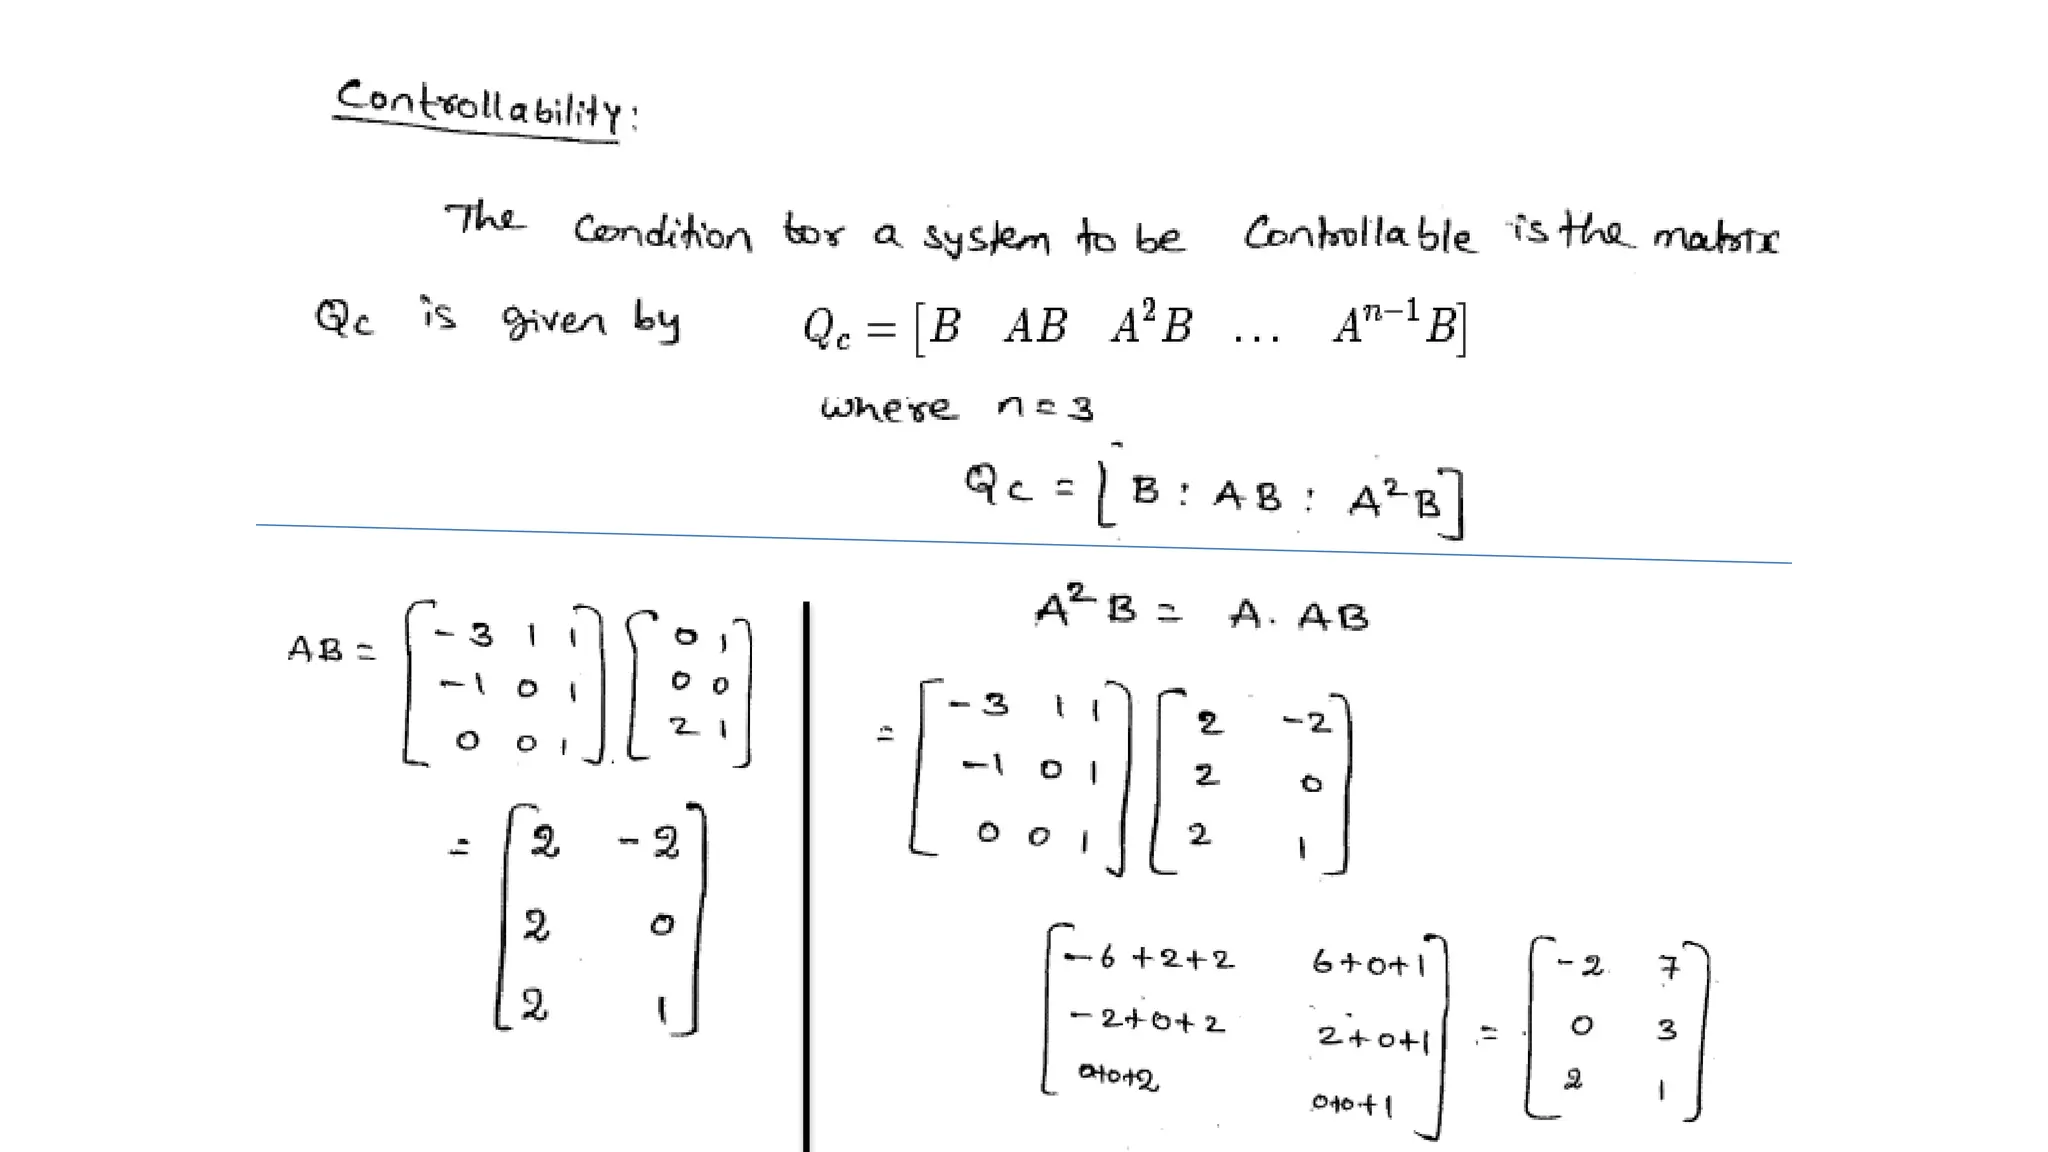 Controllability:
The Condition for a system to be Controllable is the matrix
Qc is given by Qc = [B AB A²B ... Aⁿ⁻¹B]
where n = 3
Qc = [B : AB : A²B]
AB = [-3 1 1] [0 1]
[-1 0 1] [0 0]
[0 0 1] [2 1]
= [2 -2]
[2 0]
[2 1]
A²B = A. AB
= [-3 1 1] [2 -2]
[-1 0 1] [2 0]
[0 0 1] [2 1]
[-6+2+2 6+0+1] = [-2 7]
[-2+0+2 2+0+1] [0 3]
[0+0+2 0+0+1] [2 1]